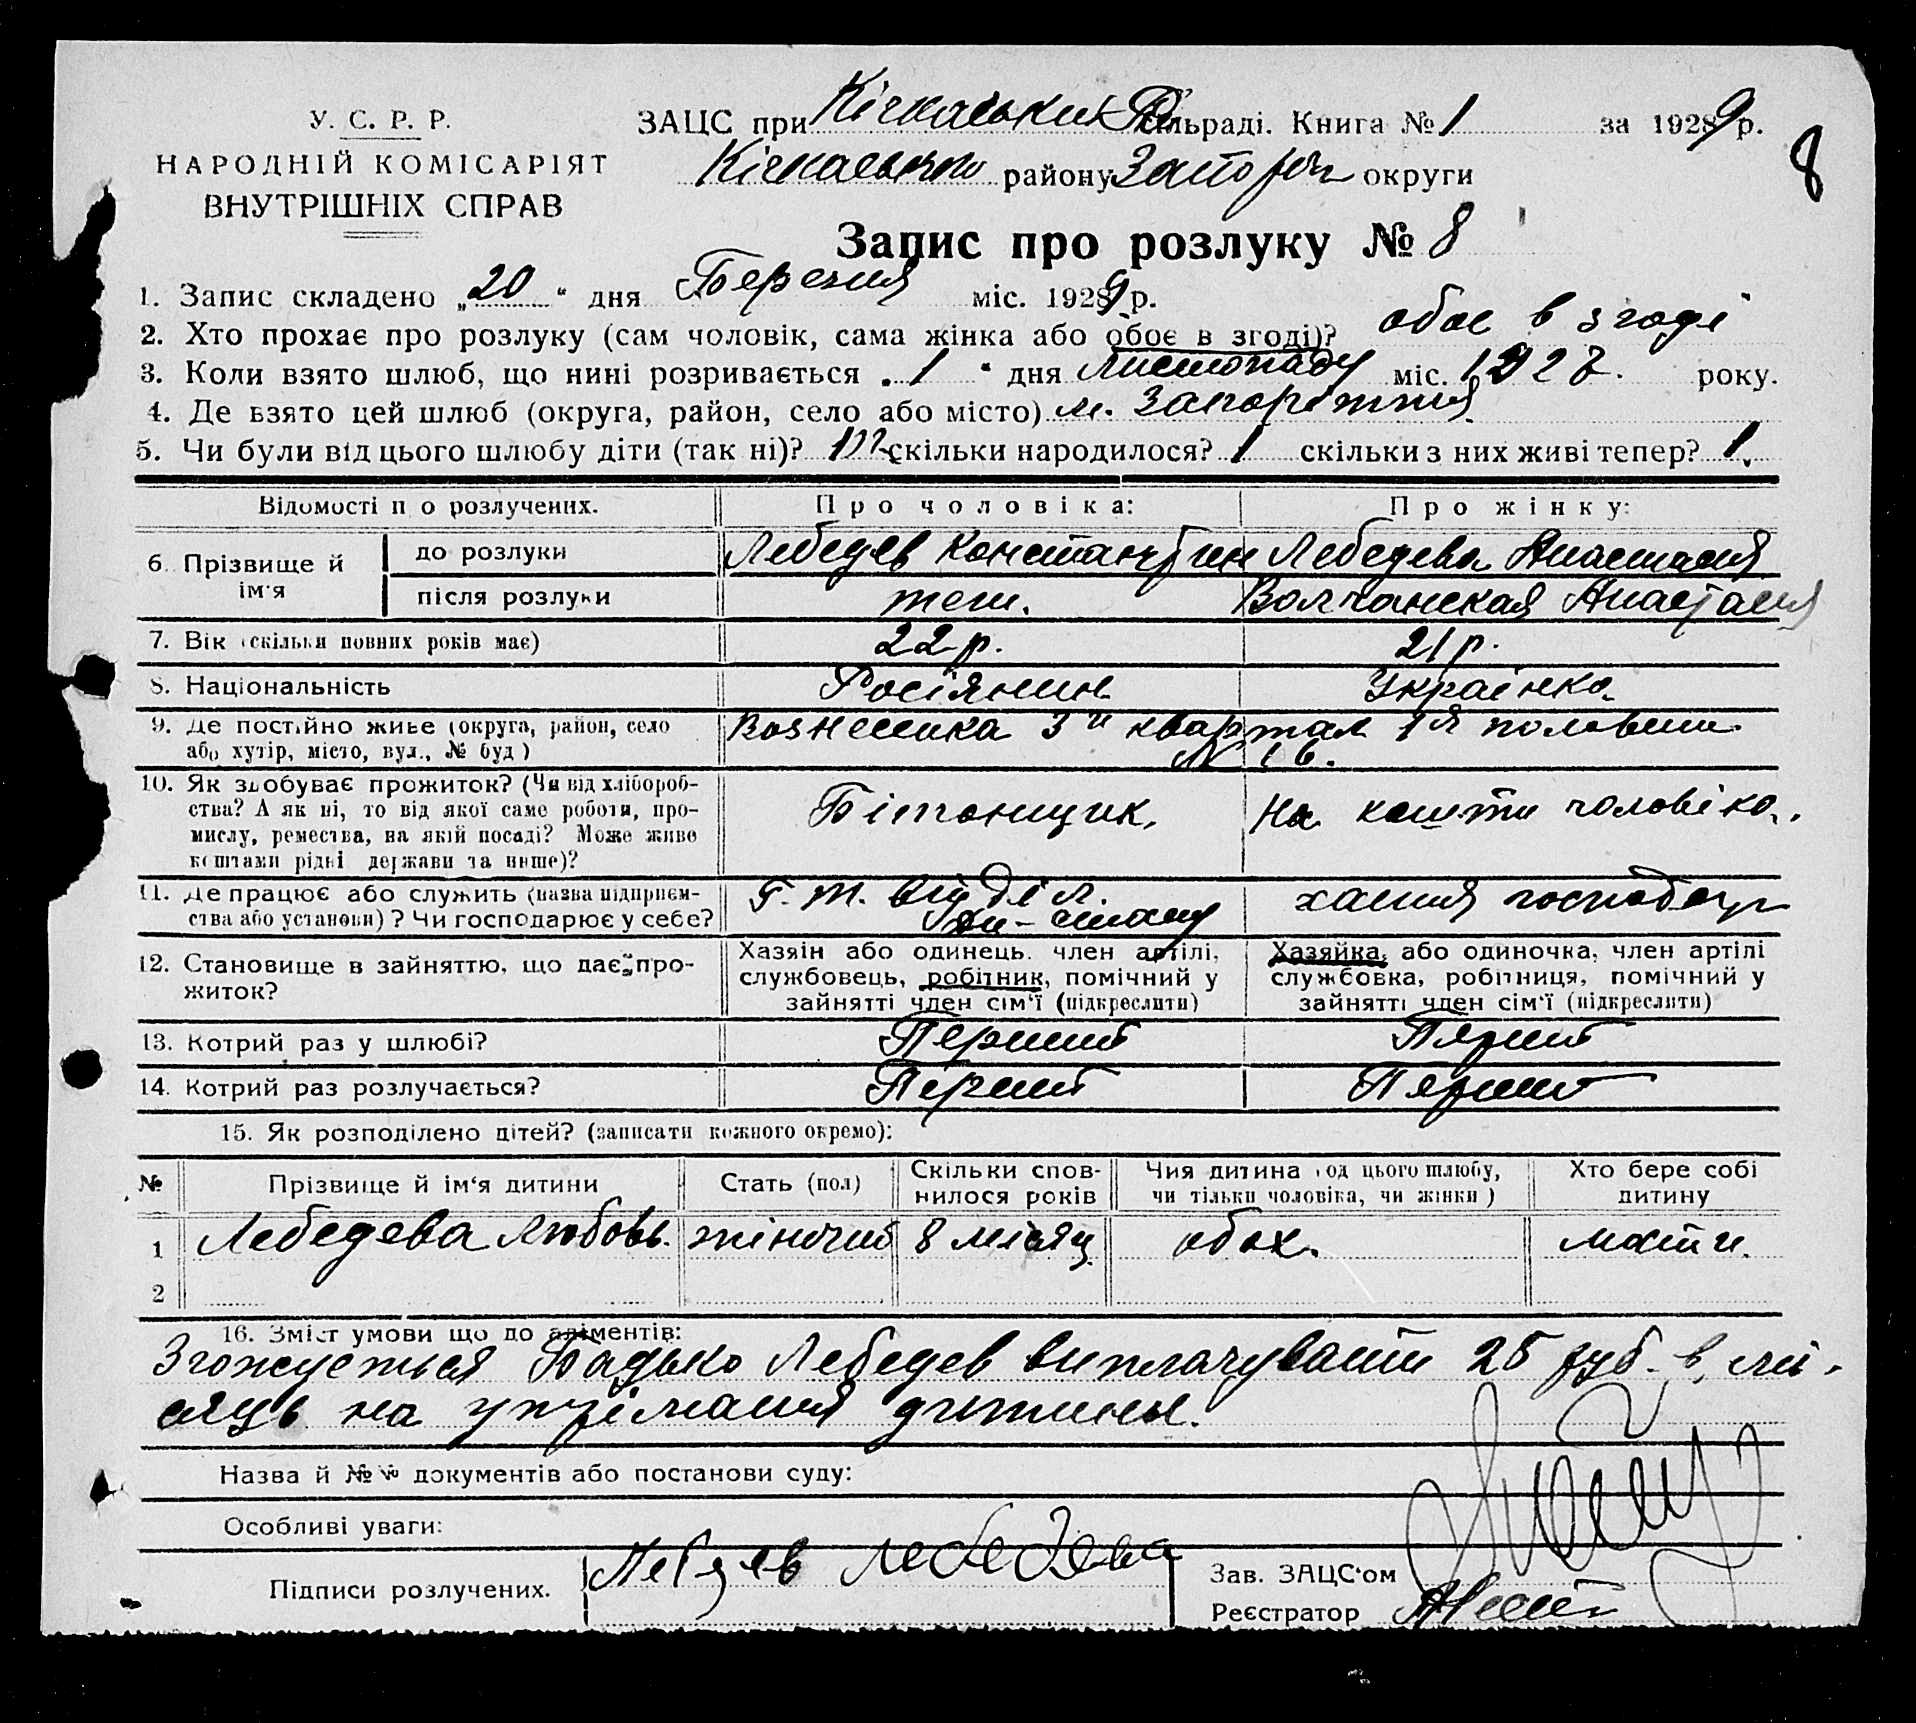 У. С. Р. Р.
НАРОДНІЙ КОМІСАРІЯТ
ВНУТРІШНІХ СПРАВ
ЗАЦС при Кічкаський Р сільраді. Книга № 1 за 1929 р.
Кічкаського району Запоріж округи
8
Запис про розлуку № 8
1. Запис складено „20“ дня Березня міс. 1929 р.
2. Хто прохає про розлуку (сам чоловік, сама жінка або обоє в згоді)? обоє в згоді
3. Коли взято шлюб, що нині розривається „1“ дня листопаду міс. 1927. року.
4. Де взято цей шлюб (округа, район, село або місто) м. Запоріжжя
5. Чи були від цього шлюбу діти (так ні)? скільки народилося? 1 скільки з них живі тепер? 1.
Відомості п о розлучених. Про чоловіка: Про жінку:
6. Прізвище й ім'я до розлуки Лебедев Константин Лебедева Анастасия
після розлуки теж. Волчанская Анастасия
7. Вік (скільки повних років має) 22 р. 21 р.
8. Національність Росіянин Українка
9. Де постійно живе (округа, район, село
або хутір, місто, вул., № буд) Вознесенка 3й квартал 1я половин
№ 16.
10. Як здобуває прожиток? (Чи від хлібороб-
ства? А як ні, то від якої саме роботи, про-
мислу, ремества, на якій посаді? Може живе
коштами рідні держави та інше)? Бітонщик, На кошти чоловіка.
11. Де працює або служить (назва підприєм-
ства або установи)? Чи господарює у себе? Г. т. відділ.
12. Становище в зайняттю, що дає про-
житок?
Хазяін або одинець. член артілі,
службовець, робітник, помічний у
зайнятті член сім'ї (підкреслити)
Хазяйка, або одиночка, член артілі
службовка, робітниця, помічний у
зайнятті член сім'ї (підкреслити)
13. Котрий раз у шлюбі? Перший Пярший
14. Котрий раз розлучається? Перший Пярший
15. Як розподілено дітей? (записати кожного окремо):
№ Прізвище й ім'я дитини Стать (пол) Скільки спов-нилося років Чия дитина (од цього шлюбу, чи тільки чоловіка, чи жінки) Хто бере собі дитину
1 Лебедева Любовь. жіночий 8 місяц. обох. мати.
2
16. Зміст умови що до аліментів:
Згожується Бадько Лебедев виплачувати 25 руб. в мі-
сяць на утрімання дитины.
Назва й №№ документів або постанови суду:
Особливі уваги:
Підписи розлучених. Лебедев Лебедева
Зав. ЗАЦС'ом
Реєстратор